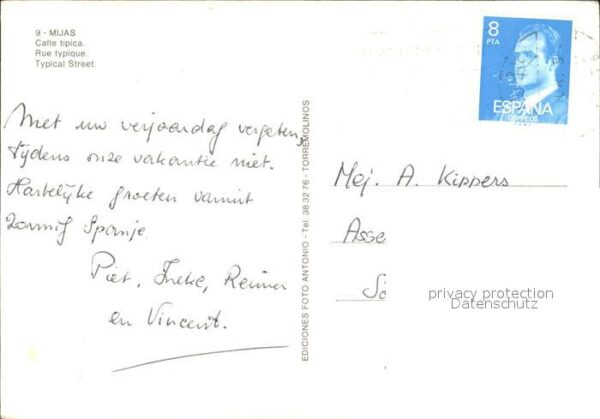 9 - MIJAS
Calle típica.
Rue typique.
Typical Street.
8
PTA
ESPAÑA
CORREOS
Met uw verjaardag vergeten,
tijdens onze vakantie niet.
Hartelijke groeten vanuit
zonnig Spanje.
Piet, Ineke, Reinier
en Vincent.
EDICIONES FOTO ANTONIO - Tel. 38 32 76 - TORREMOLINOS
Mej. A. Kippers
Asse
So
privacy protection
Datenschutz